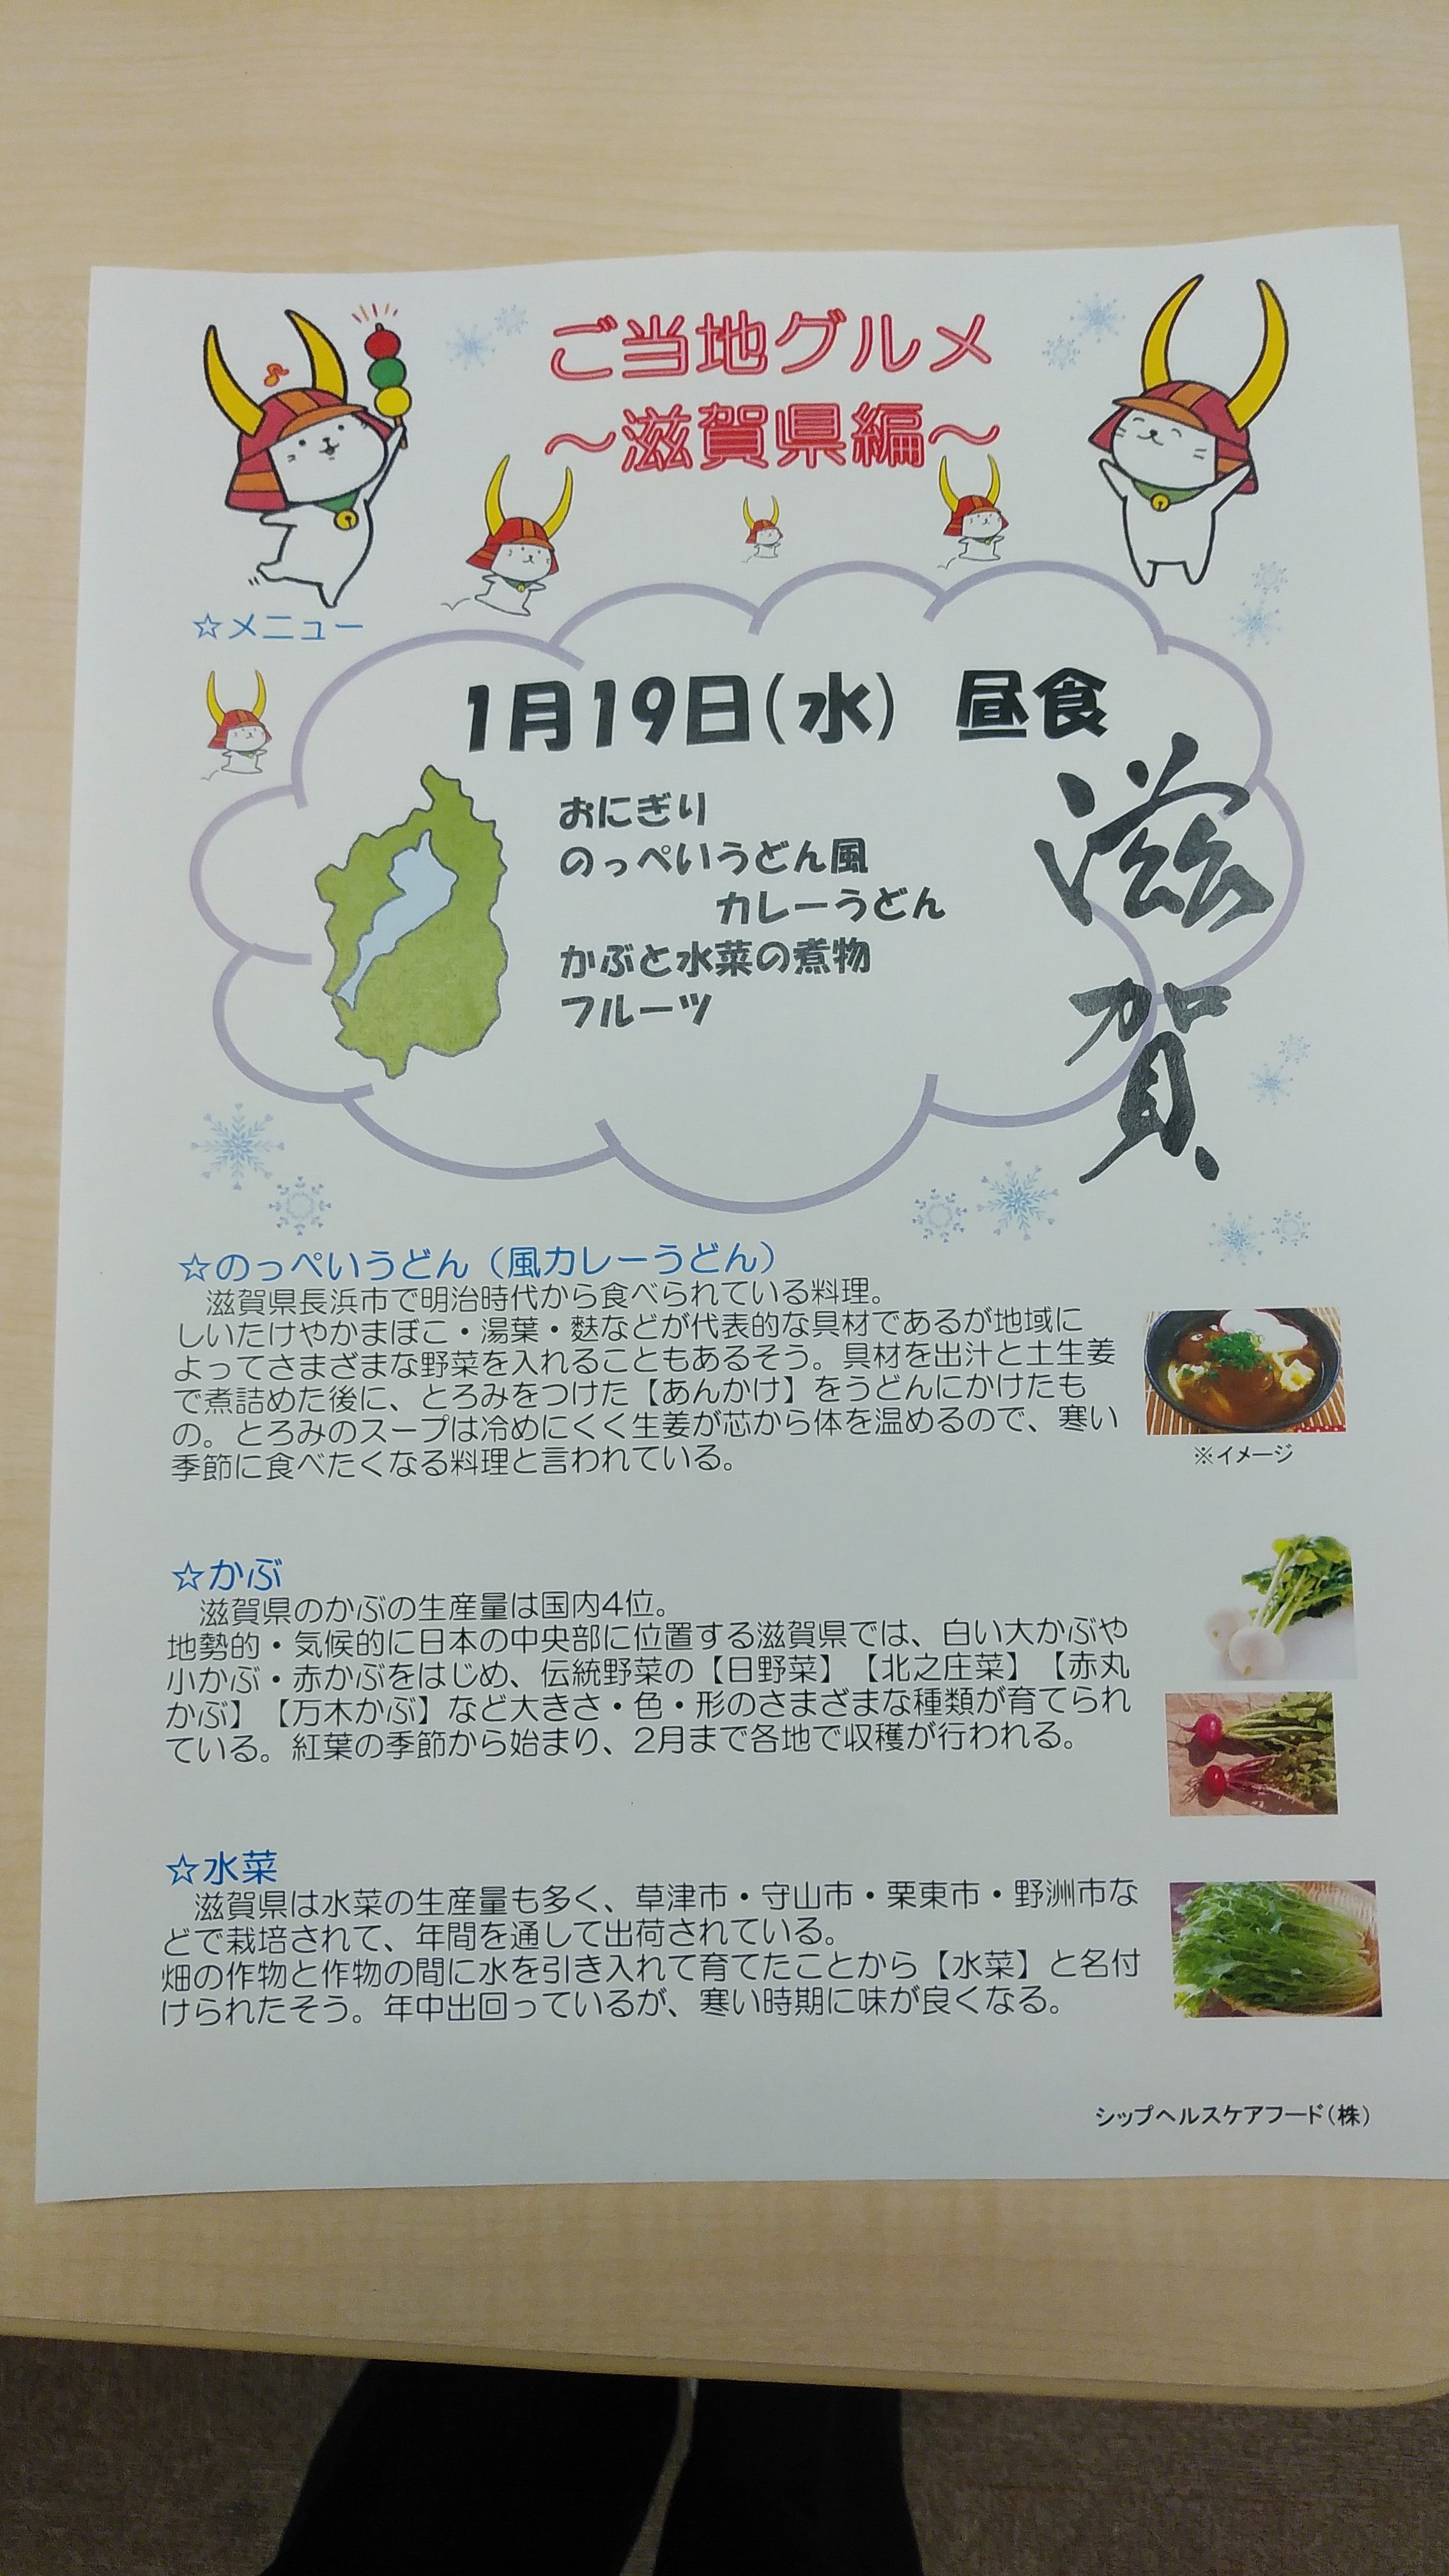 ご当地グルメ
～滋賀県編～
☆メニュー
1月19日(水) 昼食
おにぎり
のっぺいうどん風
カレーうどん
かぶと水菜の煮物
フルーツ
滋賀
☆のっぺいうどん（風カレーうどん）
滋賀県長浜市で明治時代から食べられている料理。
しいたけやかまぼこ・湯葉・麩などが代表的な具材であるが地域に
よってさまざまな野菜を入れることもあるそう。具材を出汁と土生姜
で煮詰めた後に、とろみをつけた【あんかけ】をうどんにかけたも
の。とろみのスープは冷めにくく生姜が芯から体を温めるので、寒い
季節に食べたくなる料理と言われている。
※イメージ
☆かぶ
滋賀県のかぶの生産量は国内4位。
地勢的・気候的に日本の中央部に位置する滋賀県では、白い大かぶや
小かぶ・赤かぶをはじめ、伝統野菜の【日野菜】【北之庄菜】【赤丸
かぶ】【万木かぶ】など大きさ・色・形のさまざまな種類が育てられ
ている。紅葉の季節から始まり、2月まで各地で収穫が行われる。
☆水菜
滋賀県は水菜の生産量も多く、草津市・守山市・栗東市・野洲市な
どで栽培されて、年間を通して出荷されている。
畑の作物と作物の間に水を引き入れて育てたことから【水菜】と名付
けられたそう。年中出回っているが、寒い時期に味が良くなる。
シップヘルスケアフード(株)